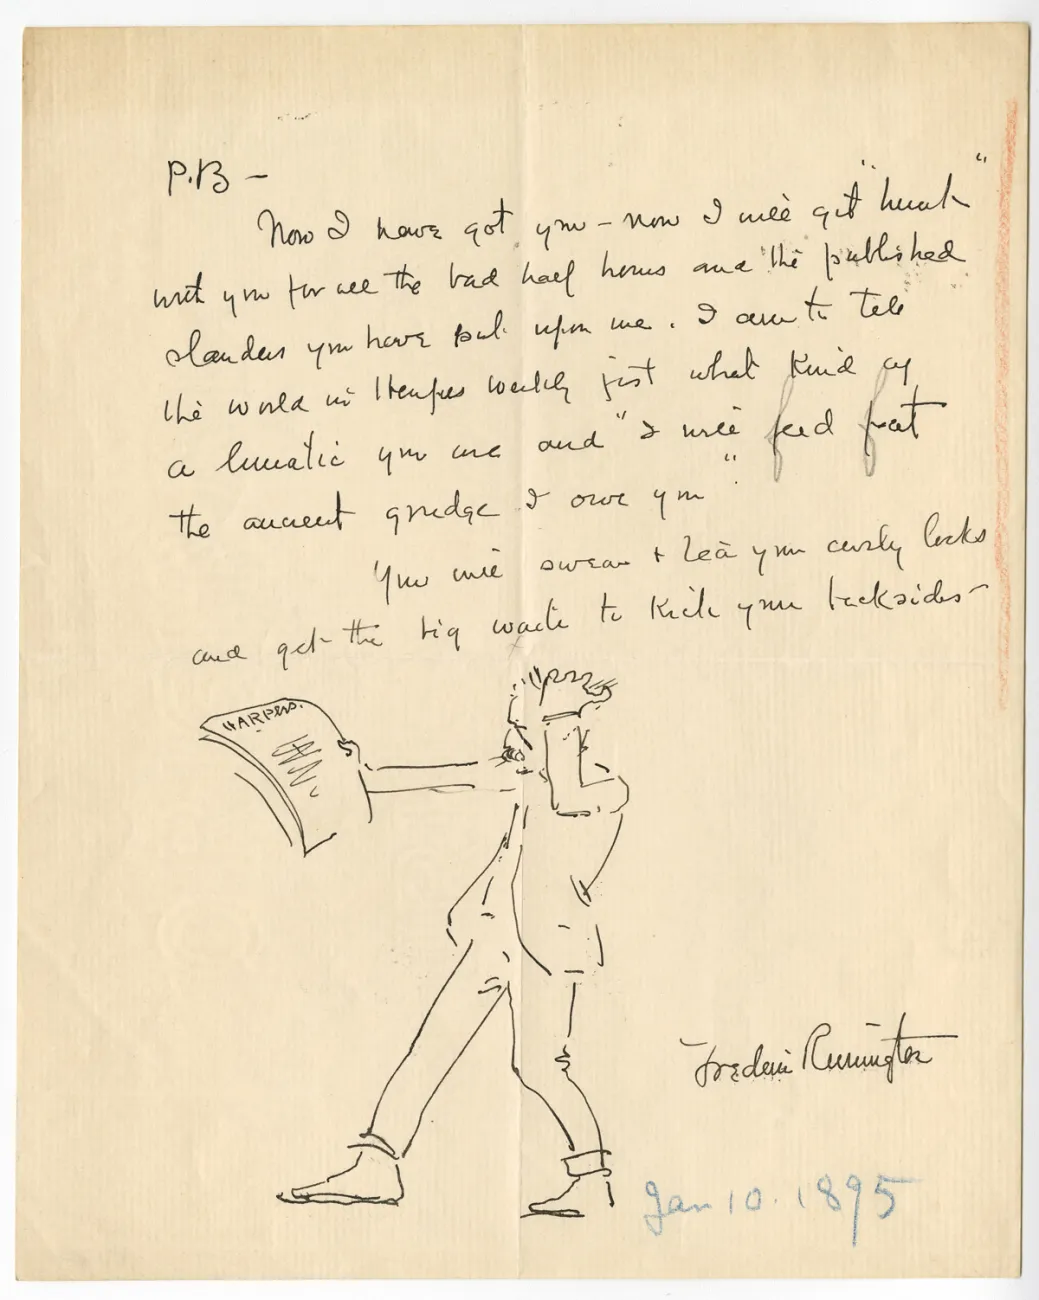 P.B —
Now I have got you — now I will get "hunk"
with you for all the bad half hours and the published
slanders you have put upon me. I am to tell
the world in Harpers Weekly just what kind of
a lunatic you are and "I will feed fat
the ancient grudge I owe you".
You will swear + tear your curly locks
and get the big waite to kick your backsides —
HARPERS.
Frederic Remington
Jan 10. 1895